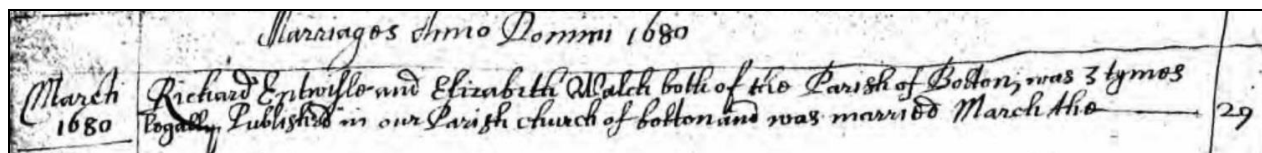 Marriages Anno Domini 1680
March Richard Entwisle and Elizabeth Walch both of the Parish of Bolton, was 3 tymes
1680 legally Publishd in our Parish church of bolton and was married March the 29